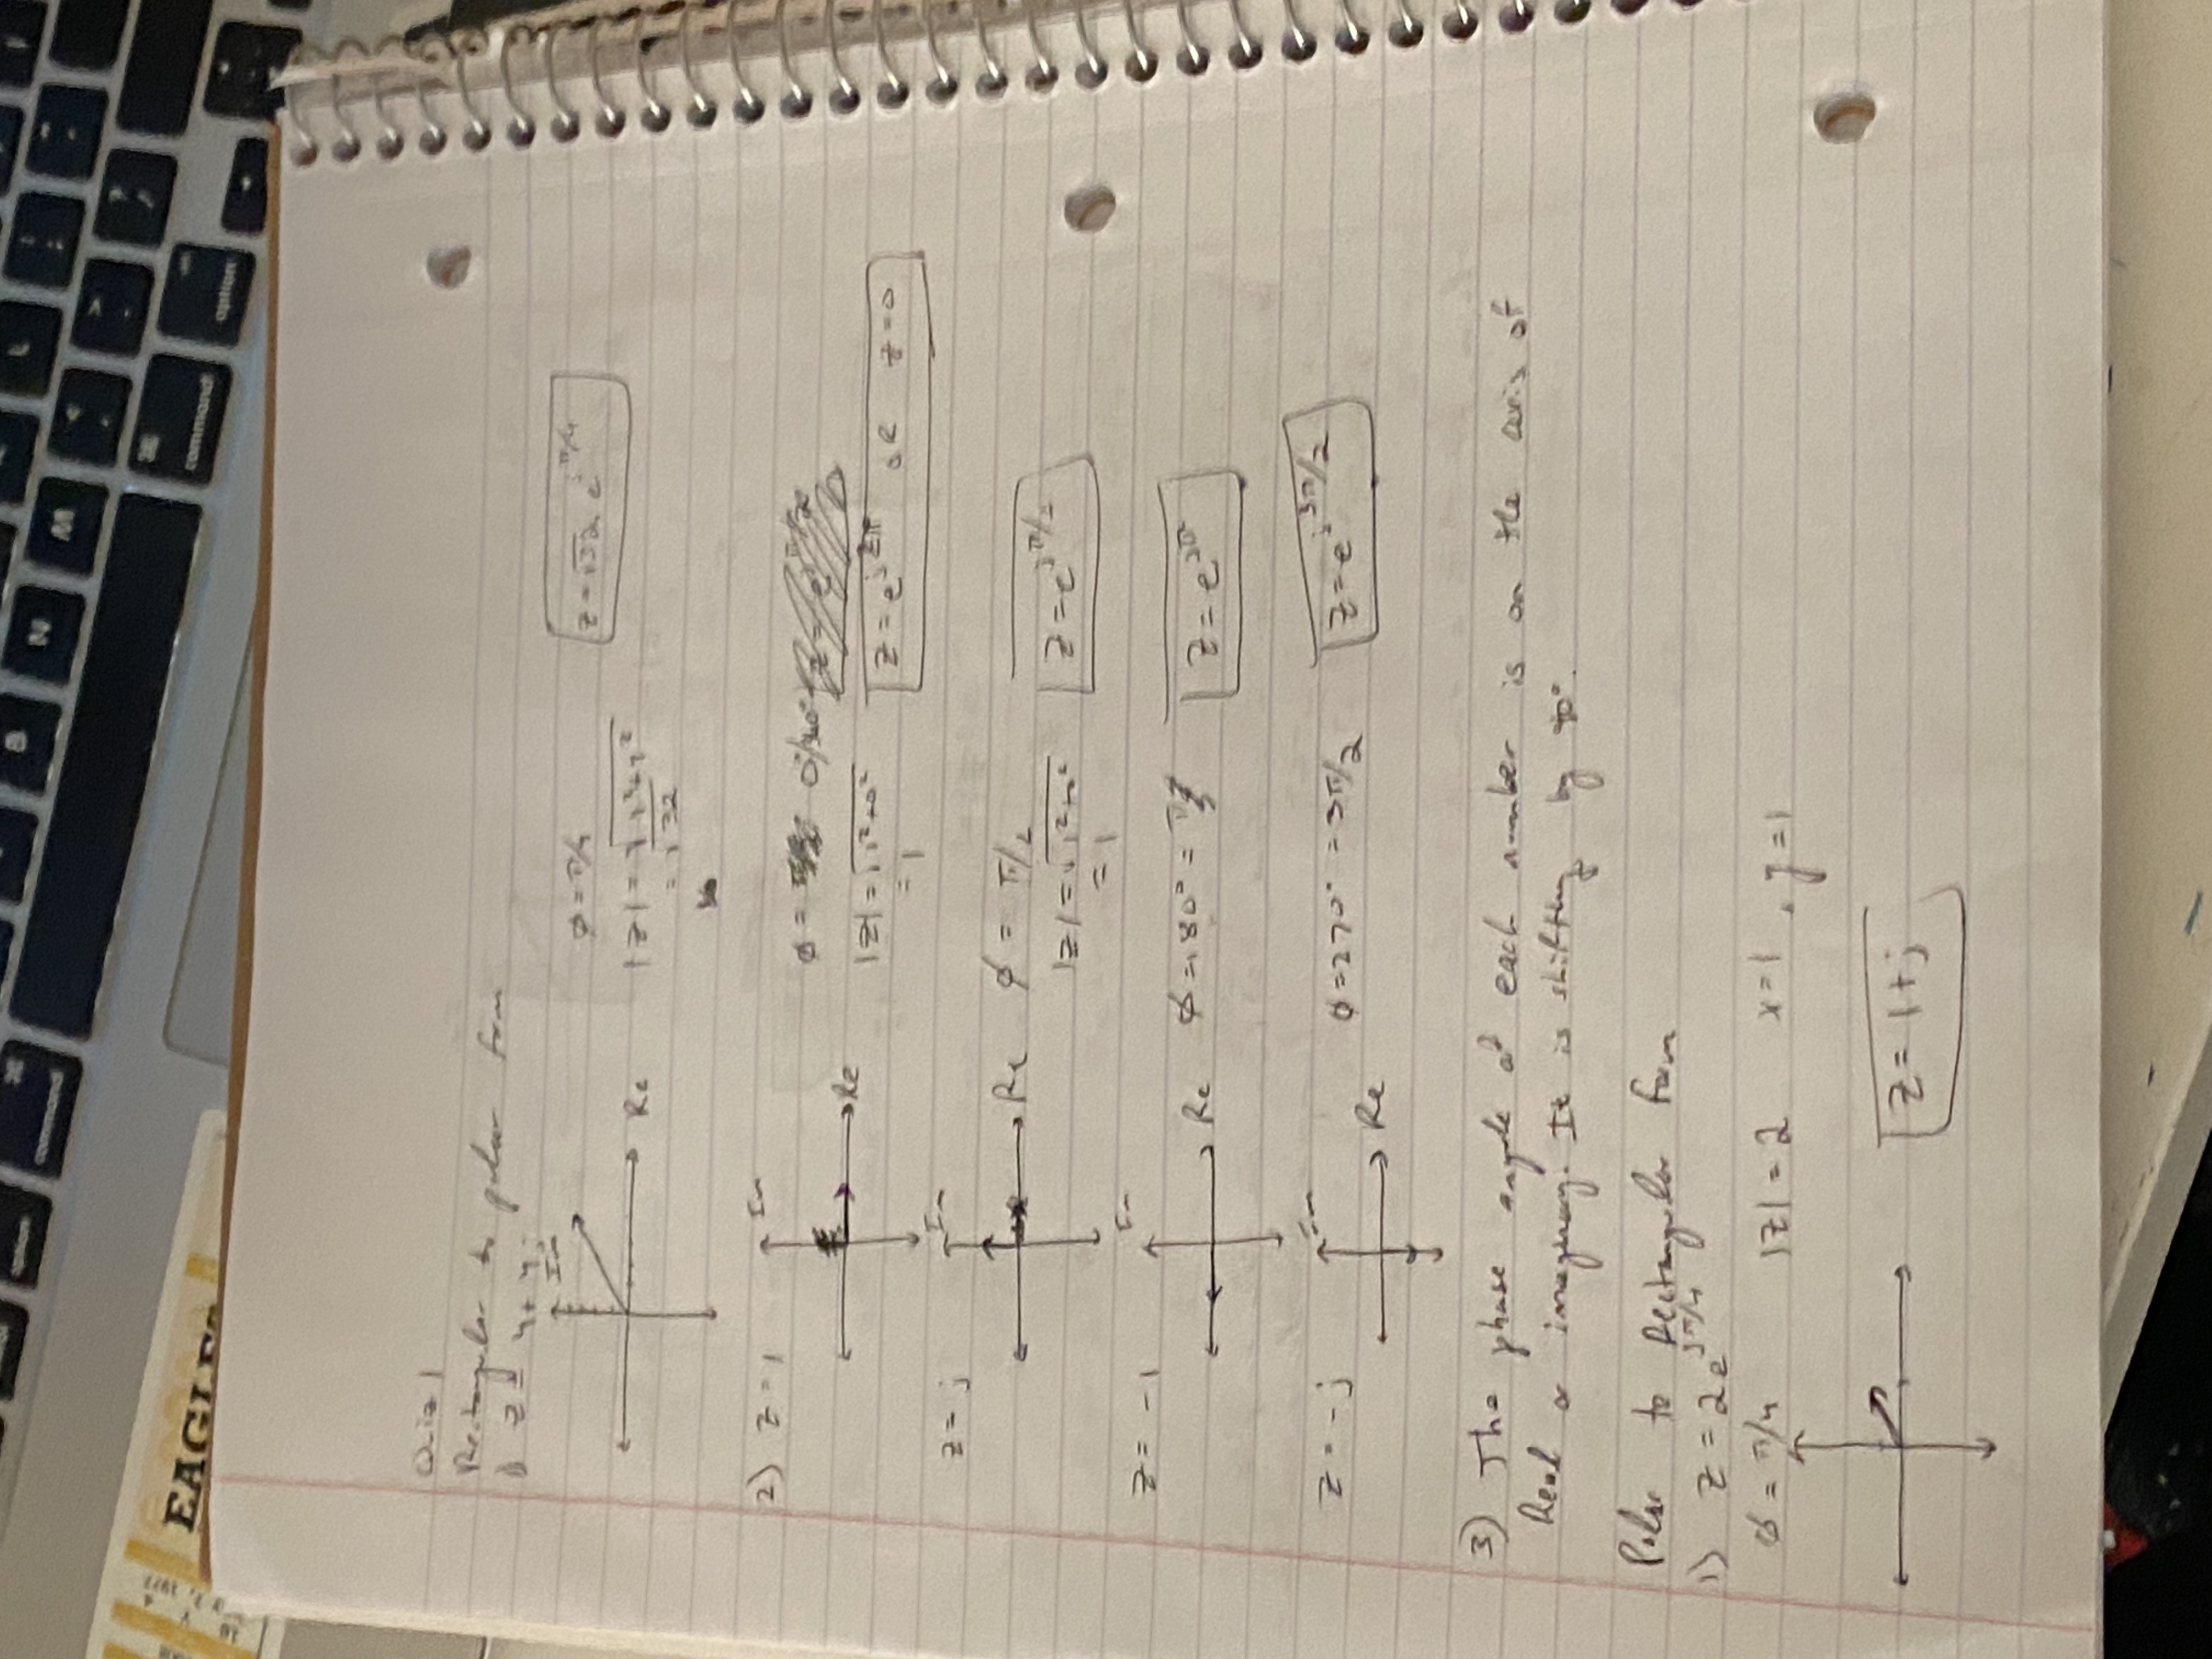 command
option
B
N
M
command
option
EAGLES
Quiz 1
Rectangular to polar form
1) z = 4 + 4j
Im
Re
φ = π/4
|z| = √4²+4²
= √32
z = √32 e^jπ/4
2) z = 1
Im
Re
φ = 0°/360°
|z| = √1²+0²
= 1
z = e^j2π OR z = 0
z = j
Im
Re
φ = π/2
|z| = √1²+0²
= 1
z = e^jπ/2
z = -1
Im
Re
φ = 180° = π
z = e^jπ
z = -j
Im
Re
φ = 270° = 3π/2
z = e^j3π/2
3) The phase angle of each number is on the axis of
Real or imaginary. It is shifting by 90°.
Polar to Rectangular form
1) z = 2e^jπ/4
φ = π/4 |z| = 2 x = 1, y = 1
z = 1 + j